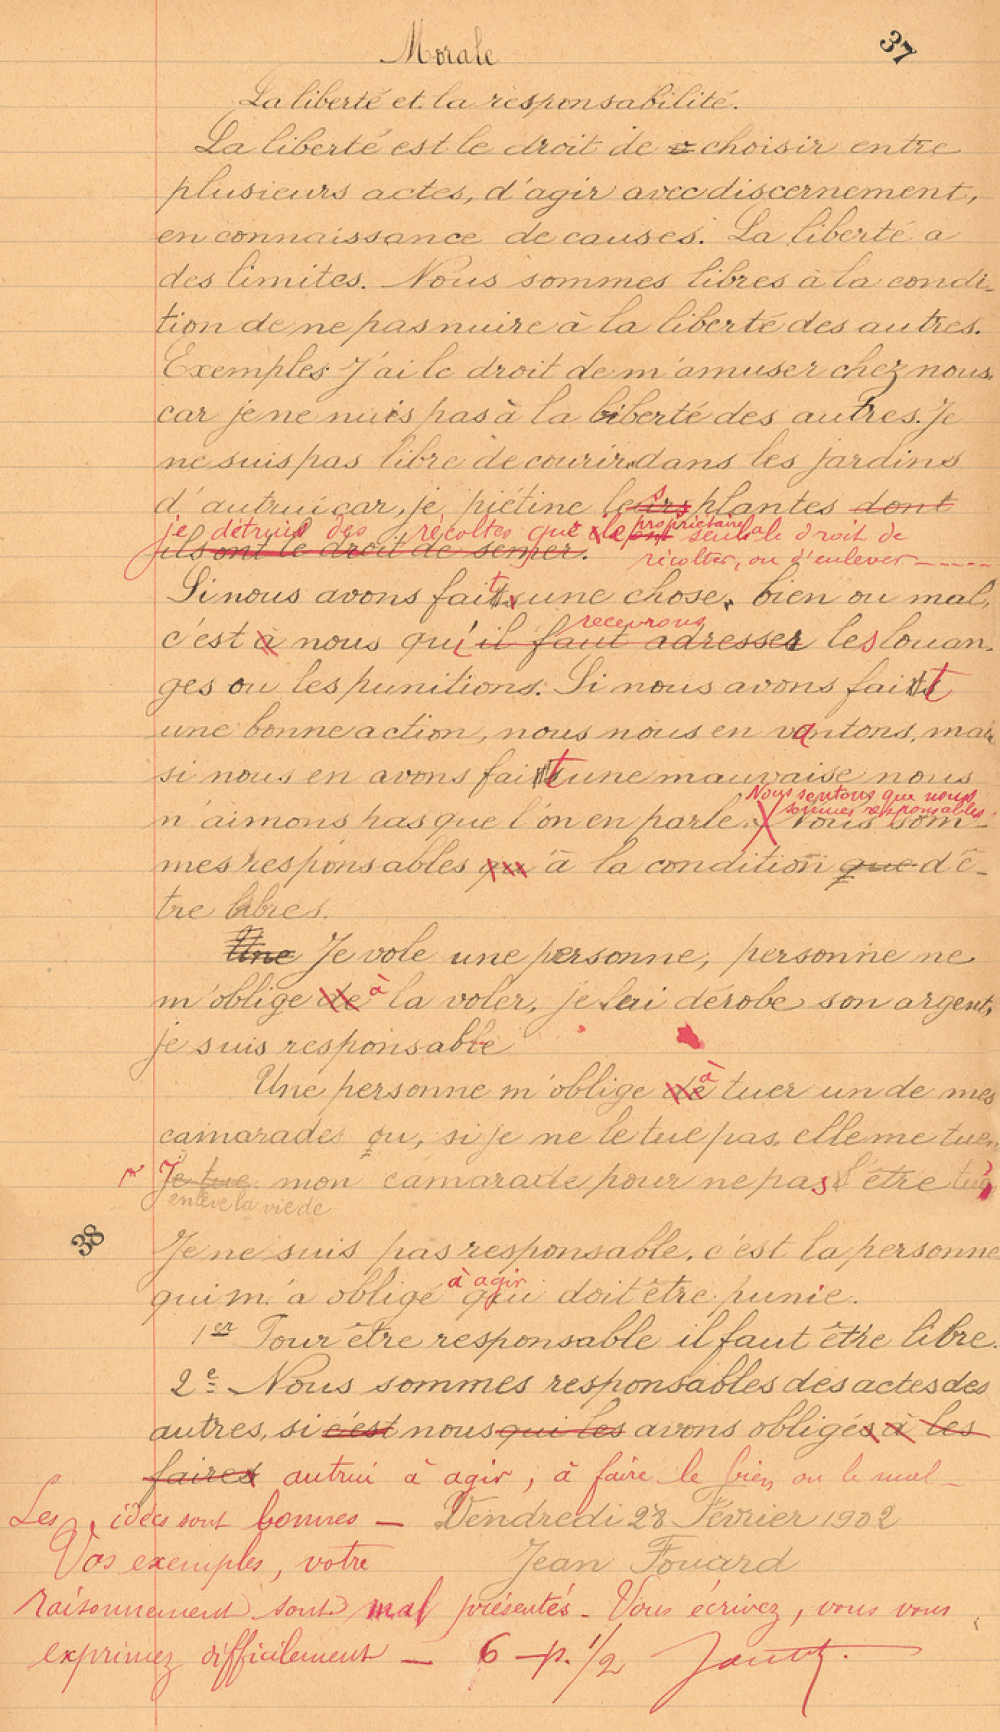 37
Morale
La liberté et la responsabilité.
La liberté est le droit de choisir entre
plusieurs actes, d'agir avec discernement,
en connaissance de causes. La liberté a
des limites. Nous sommes libres à la condi-
tion de ne pas nuire à la liberté des autres.
Exemples J'ai le droit de m'amuser chez nous,
car je ne nuis pas à la liberté des autres. Je
ne suis pas libre de courir dans les jardins
d'autrui car je piétine leurs plantes dont
je détruis des récoltes que le propriétaire seul a le droit de
ils ont le droit de semer.
récolter, ou d'enlever -----
Si nous avons fait une chose, bien ou mal,
recevrons
c'est à nous qu'il faut adresser les louan-
ges ou les punitions. Si nous avons fait
une bonne action, nous nous en vantons, mais
si nous en avons fait une mauvaise nous
Nous sentons que nous
sommes responsables
n'aimons pas que l'on en parle. Nous som-
mes responsables à la condition que d'ê-
tre libres.
Une Je vole une personne, personne ne
m'oblige de à la voler, je lui dérobe son argent,
je suis responsable
Une personne m'oblige de à tuer un de mes
camarades ou, si je ne le tue pas, elle me tuer,
Je tue mon camarade pour ne pas l'être tué,
enlève la vie de
38
Je ne suis pas responsable, c'est la personne
à agir
qui m'a obligé qui doit être punie.
1er Pour être responsable il faut être libre.
2e Nous sommes responsables des actes des
autres, si c'est nous qui les avons obligés à les
faires autrui à agir, à faire le bien ou le mal -
Les idées sont bonnes - Vendredi 28 Février 1902
Vos exemples, votre Jean Fouard
raisonnement sont mal présentés - Vous écrivez, vous vous
exprimez difficilement - 6 - p. 1/2